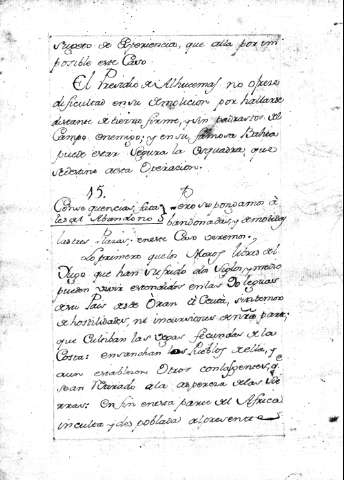 sugeto de Experiencia, que alla por im
posible este Caso
El Presidio de Alhucemas no ofrece
dificultad en su demolicion por hallarse
distante de tierra firme, y sin padrastros del
Campo enemigo; y en su famosa Bahia
puede estar segura la Esquadra, que
se destine a esta Operacion.
15.
Consequencias fata
les del Abandono
Pero supongamos a
bandonadas, y demolidas
las tres Plazas; en este Caso veremos.
Lo primero que los Moros libres del
Yugo que han sufrido dos Siglos, y medio
pueden vivir estendidos en las 90 leguas
de su Pais desde Oran à Ceuta, sin temor
de hostilidades, ni incursiones de nra parte;
que Cultiban las vegas fecundas de la
Costa: ensanchan los Pueblos de ella, y
aun establecen Otros
la aspereza de las Sie
rras: En fin en esta parte del Africa
inculta y despoblada al presente